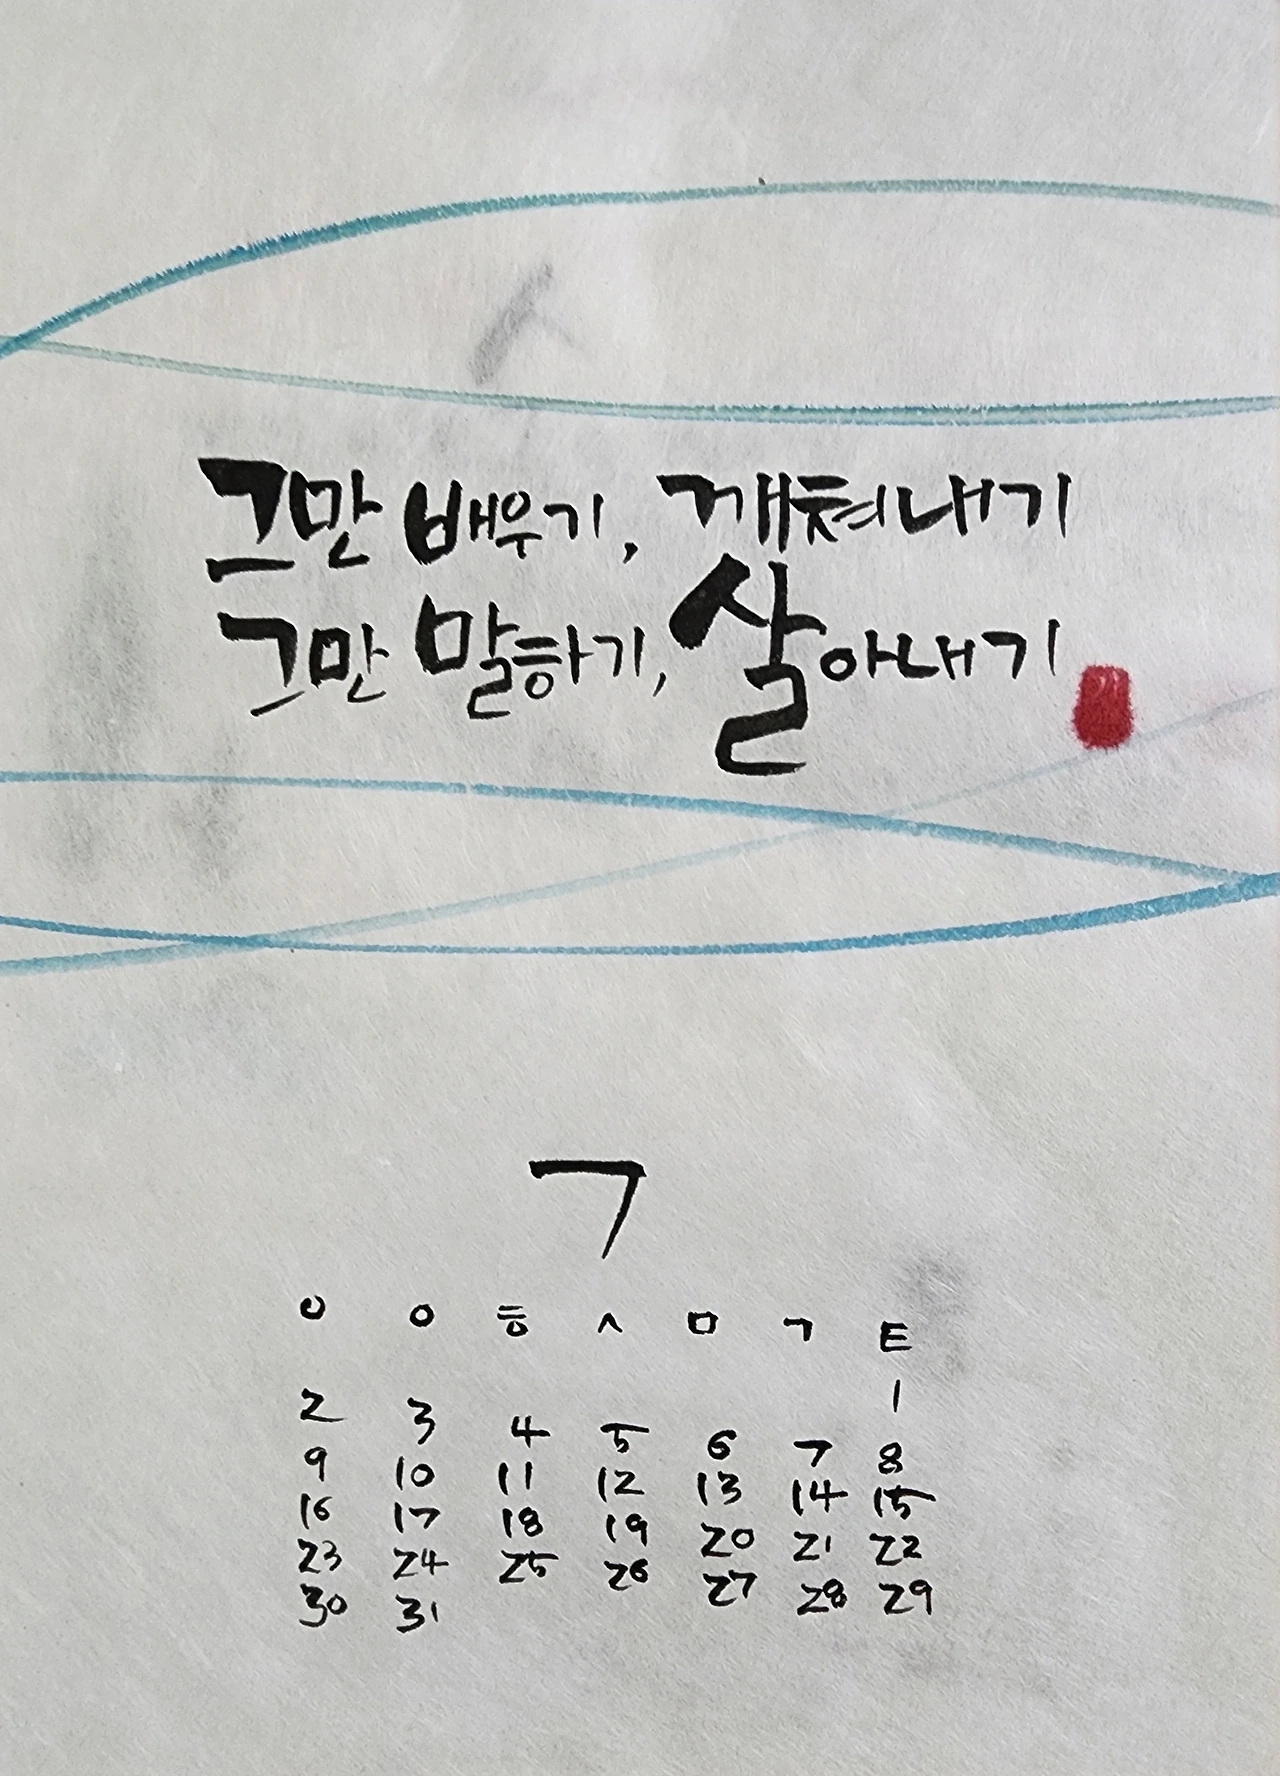 그만 배우기, 깨쳐내기
그만 말하기, 살아내기
7
ㅇ ㅇ ㅎ ㅅ ㅁ ㄱ ㅌ
1
2 3 4 5 6 7 8
9 10 11 12 13 14 15
16 17 18 19 20 21 22
23 24 25 26 27 28 29
30 31